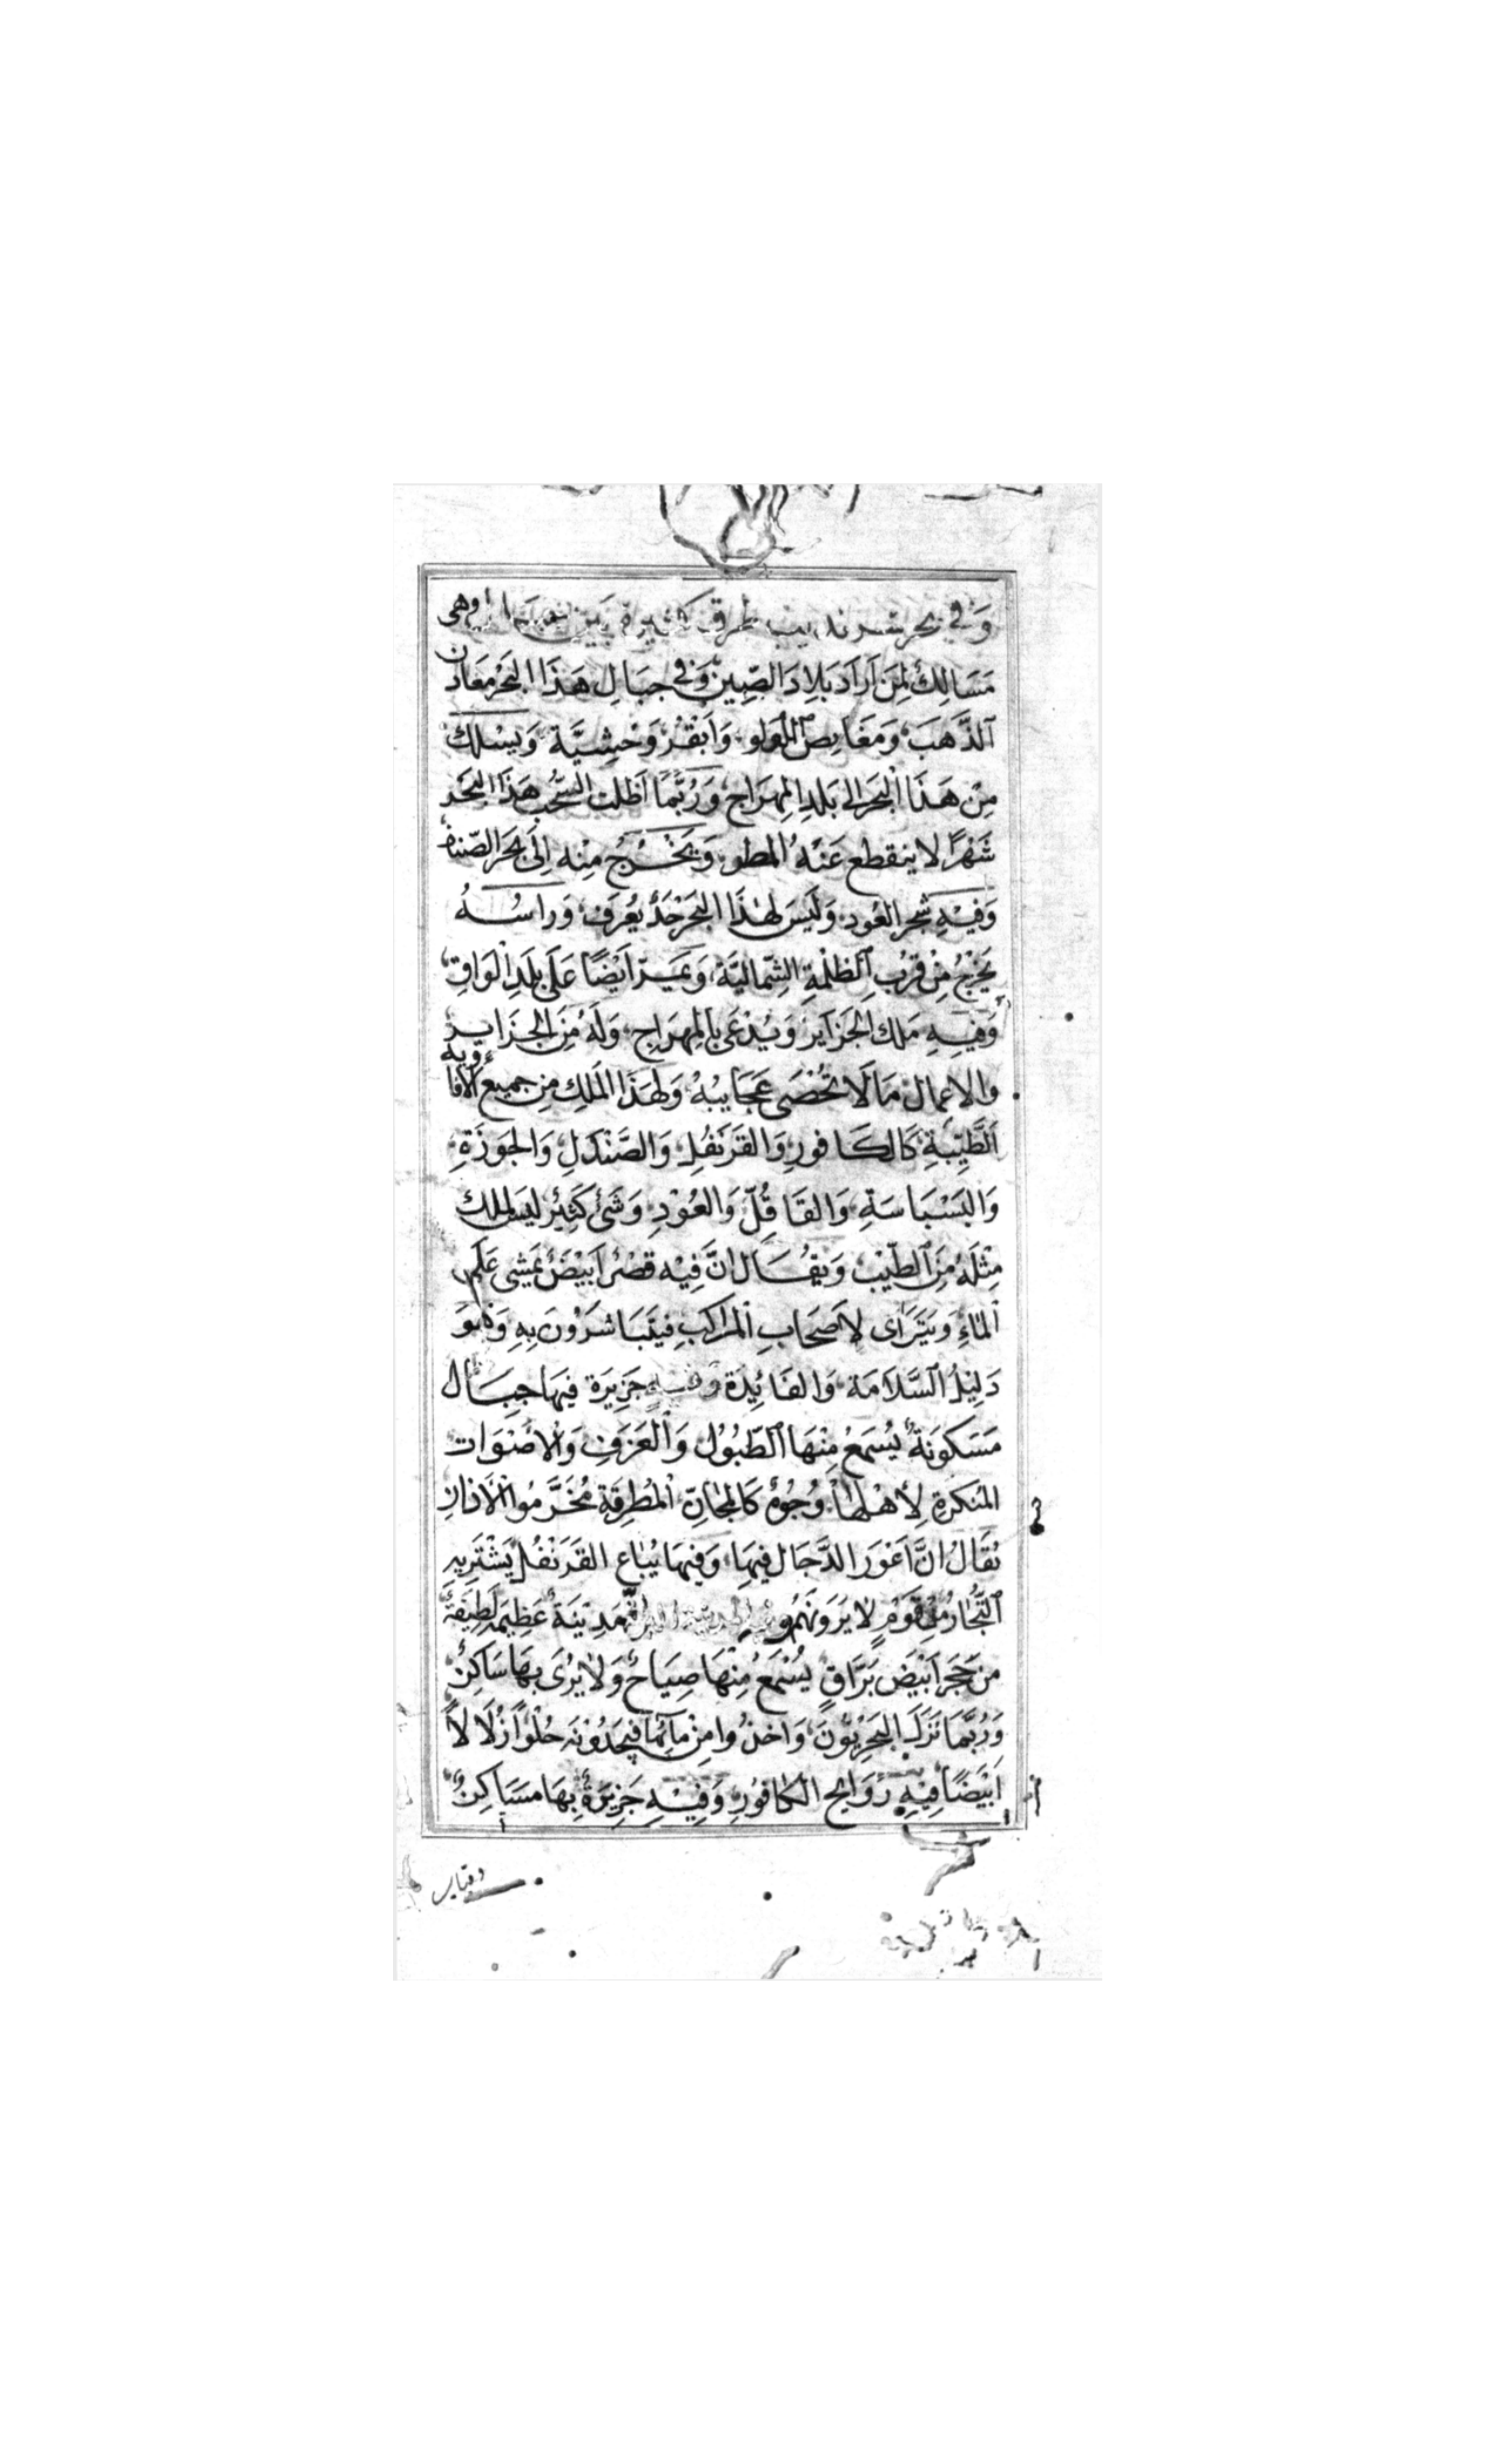 وَفي بحر سرنديب طرق كثيرة بين وهى
مَسَالِكُ لِمَن اَرَادَ بَلِادَ الصِّينْ وَفي جبَالِ هَذَا البَحْرْ مَعَادن
الذَّهَبَ وَمَغَايصِ اللؤلو وَاَبقْرْ وَحْشِيَّة وَيسْلك
مِنْ هَذَا الْبَحَر الى بَلَدِ المِهرَاج وَرُبَّمَا اَظلت السُّحُب هَذَا البَحَر
شَهْرًا لا ينقطع عَنْهُ المطر وَيَخْرُجُ مِنْه اِلَى بَحَر الصّنف
وَفيْهِ شَجر العُود وَلَيسَ لهٰذَا البَحَر حَدٌ يُعْرَف وَراسُهُ
يَخرُجُ مِنْ قرُبِ الظلْمةِ الشِّماليَّة وَيَمَرّ اَيْضًا عَلَى بلَدِ الْوَاقِ
وَفيِهِ مَلك الجَزَايرْ وَيُدْعَى بالمِهرَاجِ وَلَهُ مِنَ الجزَايِر
والاعمال مَا لَا تحُصَى عَجَايبُهُ وَلهَذَا المَلكِ مِن جميع الافاويه
الطَّيِّبَةِ كَالكَافورِ وَالقَرَنفُلِ وَالصَّنْدَلِ وَالجَوزَةِ
وَالبَسْبَاسَةِ وَالقَاقُلّ وَالعُوْدِ وَشَىْ كَثِيْرْ ليسَ لملك
مِثْلَهُ مِنَ الطّيْبْ وَيُقَال انَّ فِيْه قصْرْ اَبيَضْ يَمْشِى عَلَى
المَاءِ وَيَتَرَاى لاَصَحَابِ المَراكَبِ فَيتَبَاشَرَوُنَ بِهِ وَهُوَ
دَليْلُ السَّلاَمَة وَالفَائِدَة وَفيه جَزِيرَة فيهَا جِبَال
مَسَكوُنَةٌ يُسمَعُ مِنْهَا الطّبُوُل وَالعَزَفِ وَالاَصْوَات
المُنكرَةِ لِأهْلهَا وُجُوُهٌ كَالمَجَانِّ المُطرقَةِ مُخَرَّمُوا الْاَذانِ
يُقَالُ انَّ اَعَوَر الدَّجَال فيهَا وَفيهَا يُبَاع القَرَنْفُل يَشْتَرِيهِ
التُجَّارُ مِن قَومٍ لَا يَرَونَهُمْ مَدِيَنةٌ عَظِيمَة لَطِيَفةٌ
مِنَ حَجَر اَبيَضَ بَرَّاقٍ يُسْمَعُ مِنْهَا صِيَاحٌ وَلَا يرُىَ بهَا سَاكِنٌ
وَرُبَّمَا نَزَلَ البَحَرِيّوُنَ وَاخَذُوا مِنْ مآئِهَا فيَجدُونَه حُلْوًا زُلَالاً
اَبيَضًا فيْهِ رَوَايح الكافُورِ وَفيْهِ جَزِيَرةٌ بِهَا مسَاكِنٌ